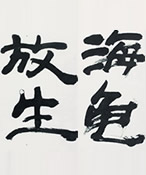 海龟
放生